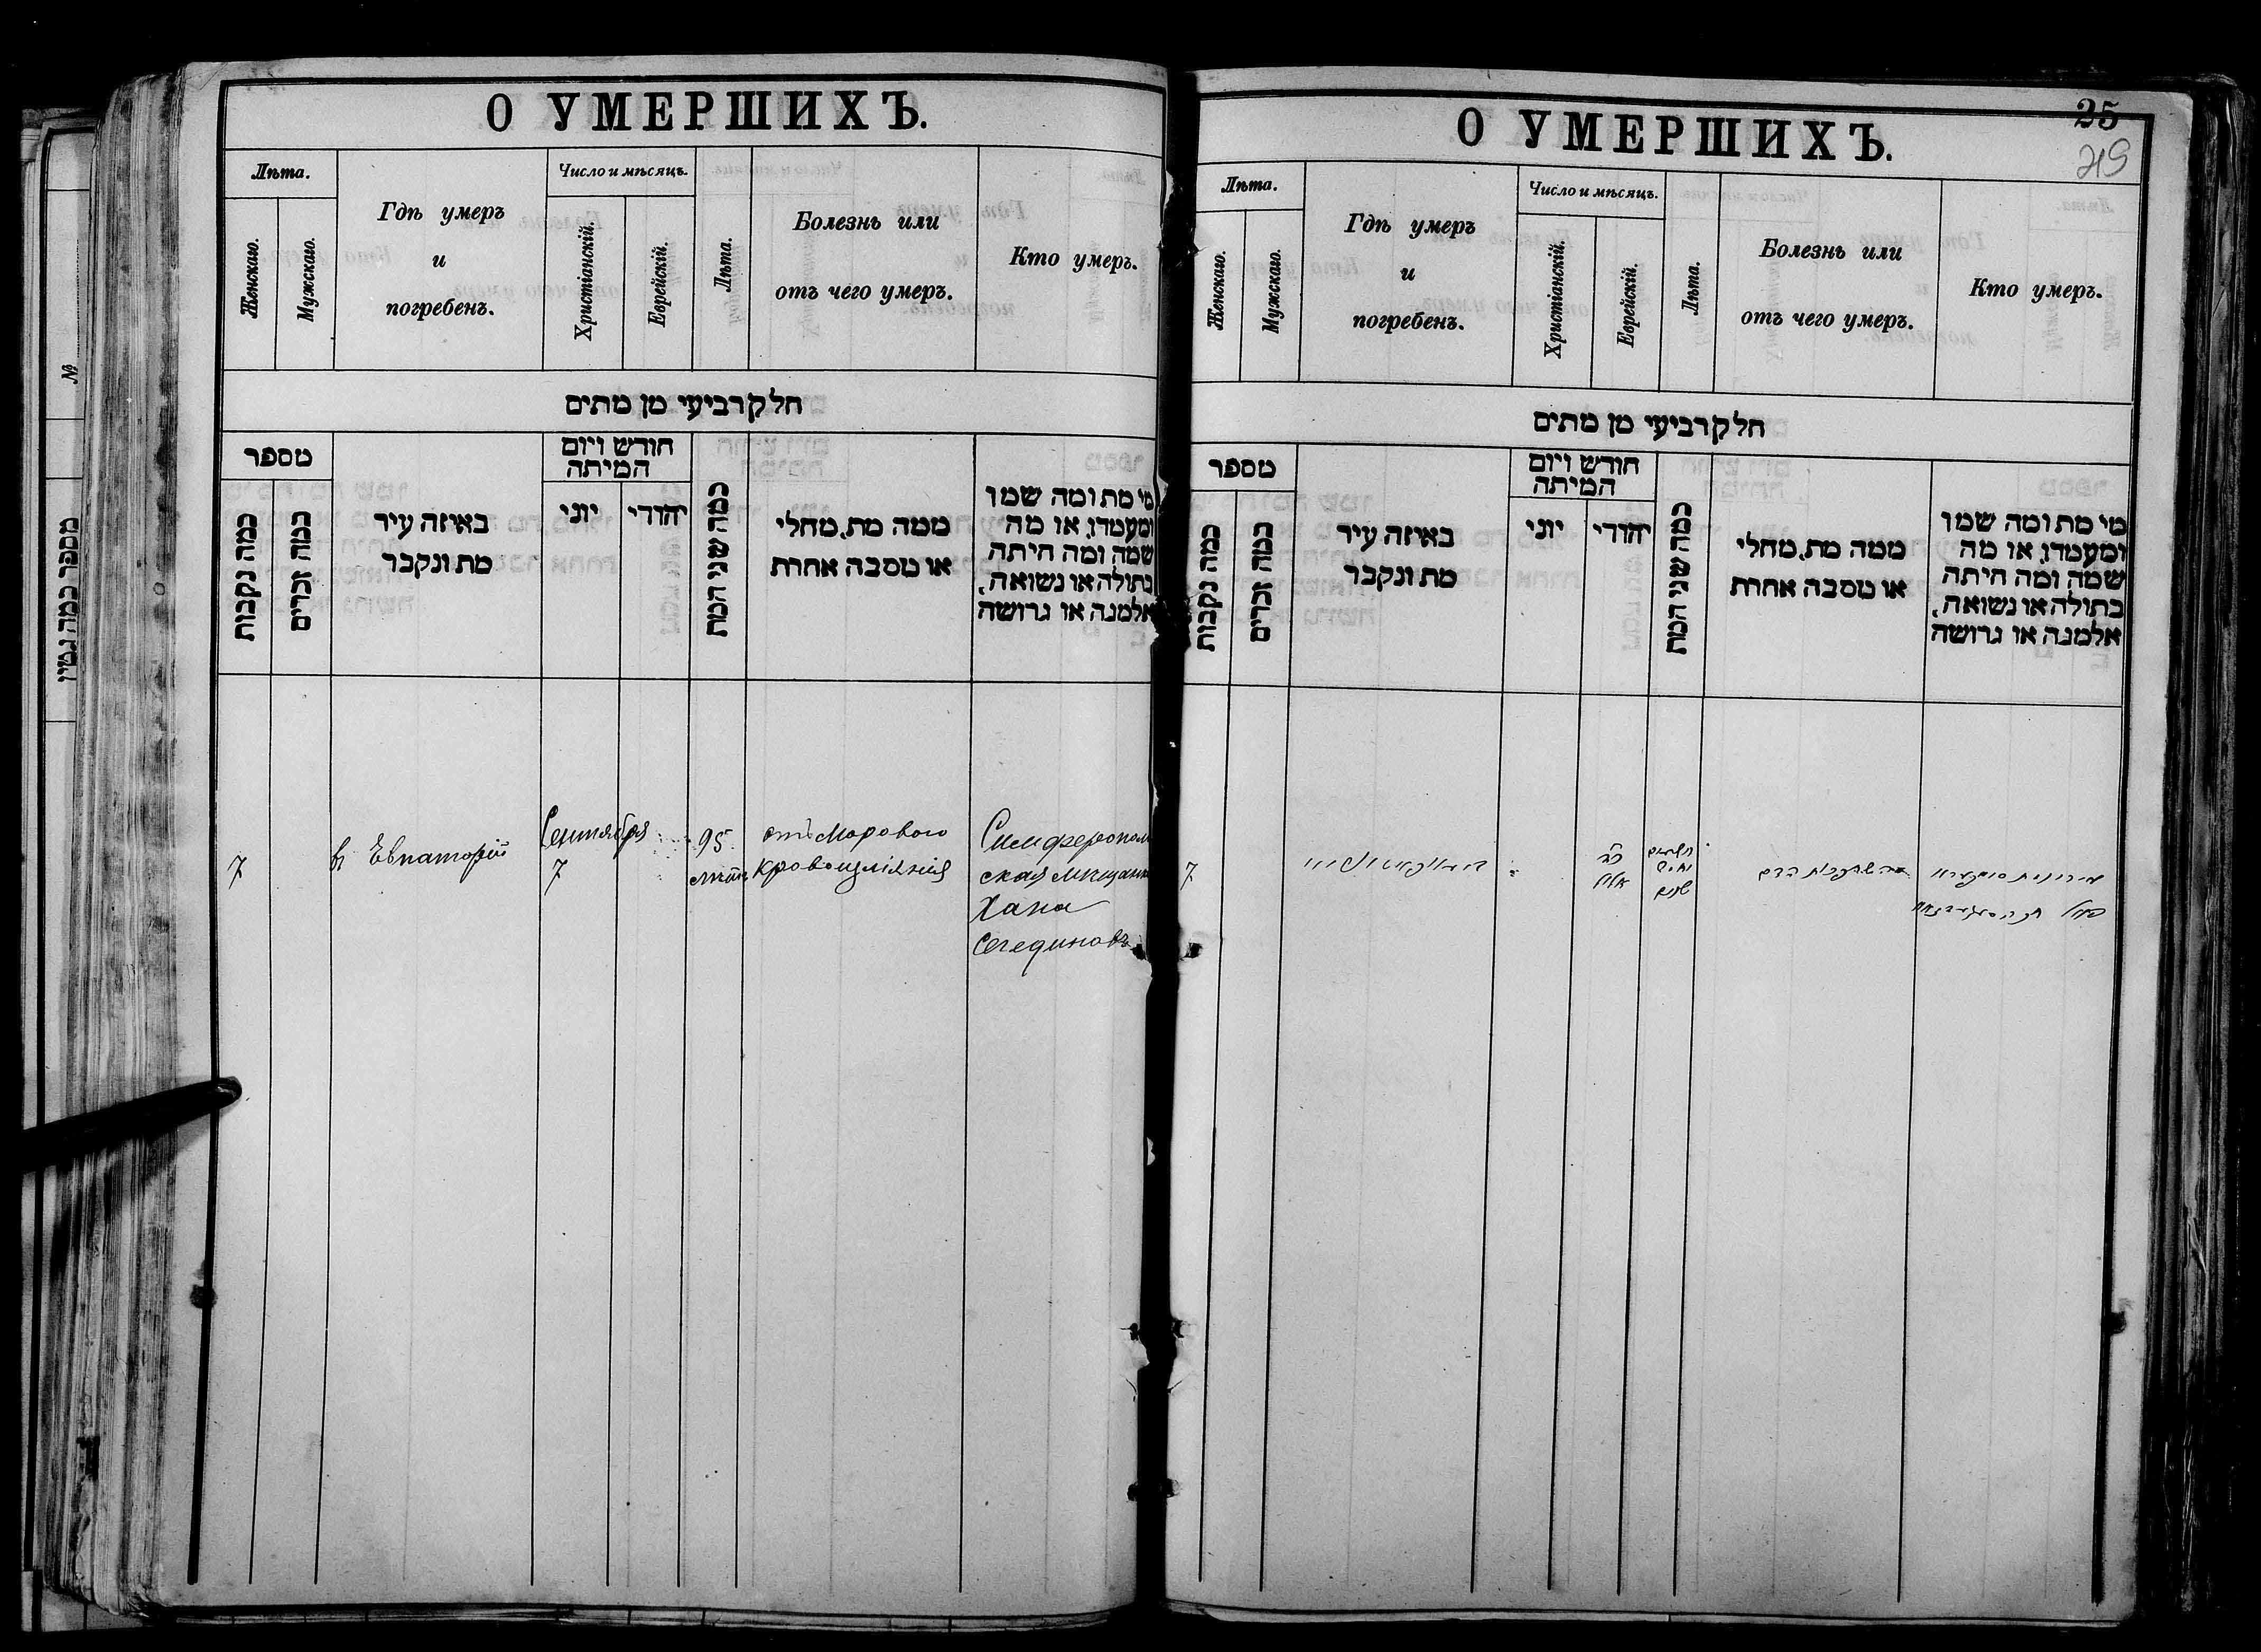 О УМЕРШИХЪ.
Лѣта.
Женскаго.
Мужскаго.
Гдѣ умеръ
и
погребенъ.
Число и мѣсяцъ.
Христіанскій.
Еврейскій.
Лѣта.
Болезнь или
отъ чего умеръ.
Кто умеръ.
חלק רביעי מן מתים
מספר
כמה נקבות
כמה זכרים
באיזה עיר
מת ונקבר
חודש ויום
המיתה
יוני
יהודי
כמה שני המת
ממה מת, מחלי
או מסבה אחרת
מי מת ומה שמו
ומעמדו, או מה
שמה ומה היתה
בתולה או נשואה,
אלמנה או גרושה
7
въ Евпаторіи
Сентября
7
95
лѣтъ
отъ
кровоизліянія
Симферополь
ская мѣщанка
Хана
О УМЕРШИХЪ.
25
Лѣта.
Женскаго.
Мужскаго.
Гдѣ умеръ
и
погребенъ.
Число и мѣсяцъ.
Христіанскій.
Еврейскій.
Лѣта.
Болезнь или
отъ чего умеръ.
Кто умеръ.
חלק רביעי מן מתים
מספר
כמה נקבות
כמה זכרים
באיזה עיר
מת ונקבר
חודש ויום
המיתה
יוני
יהודי
כמה שני המת
ממה מת, מחלי
או מסבה אחרת
מי מת ומה שמו
ומעמדו, או מה
שמה ומה היתה
בתולה או נשואה,
אלמנה או גרושה
7
אלול
שנים
הדם
№